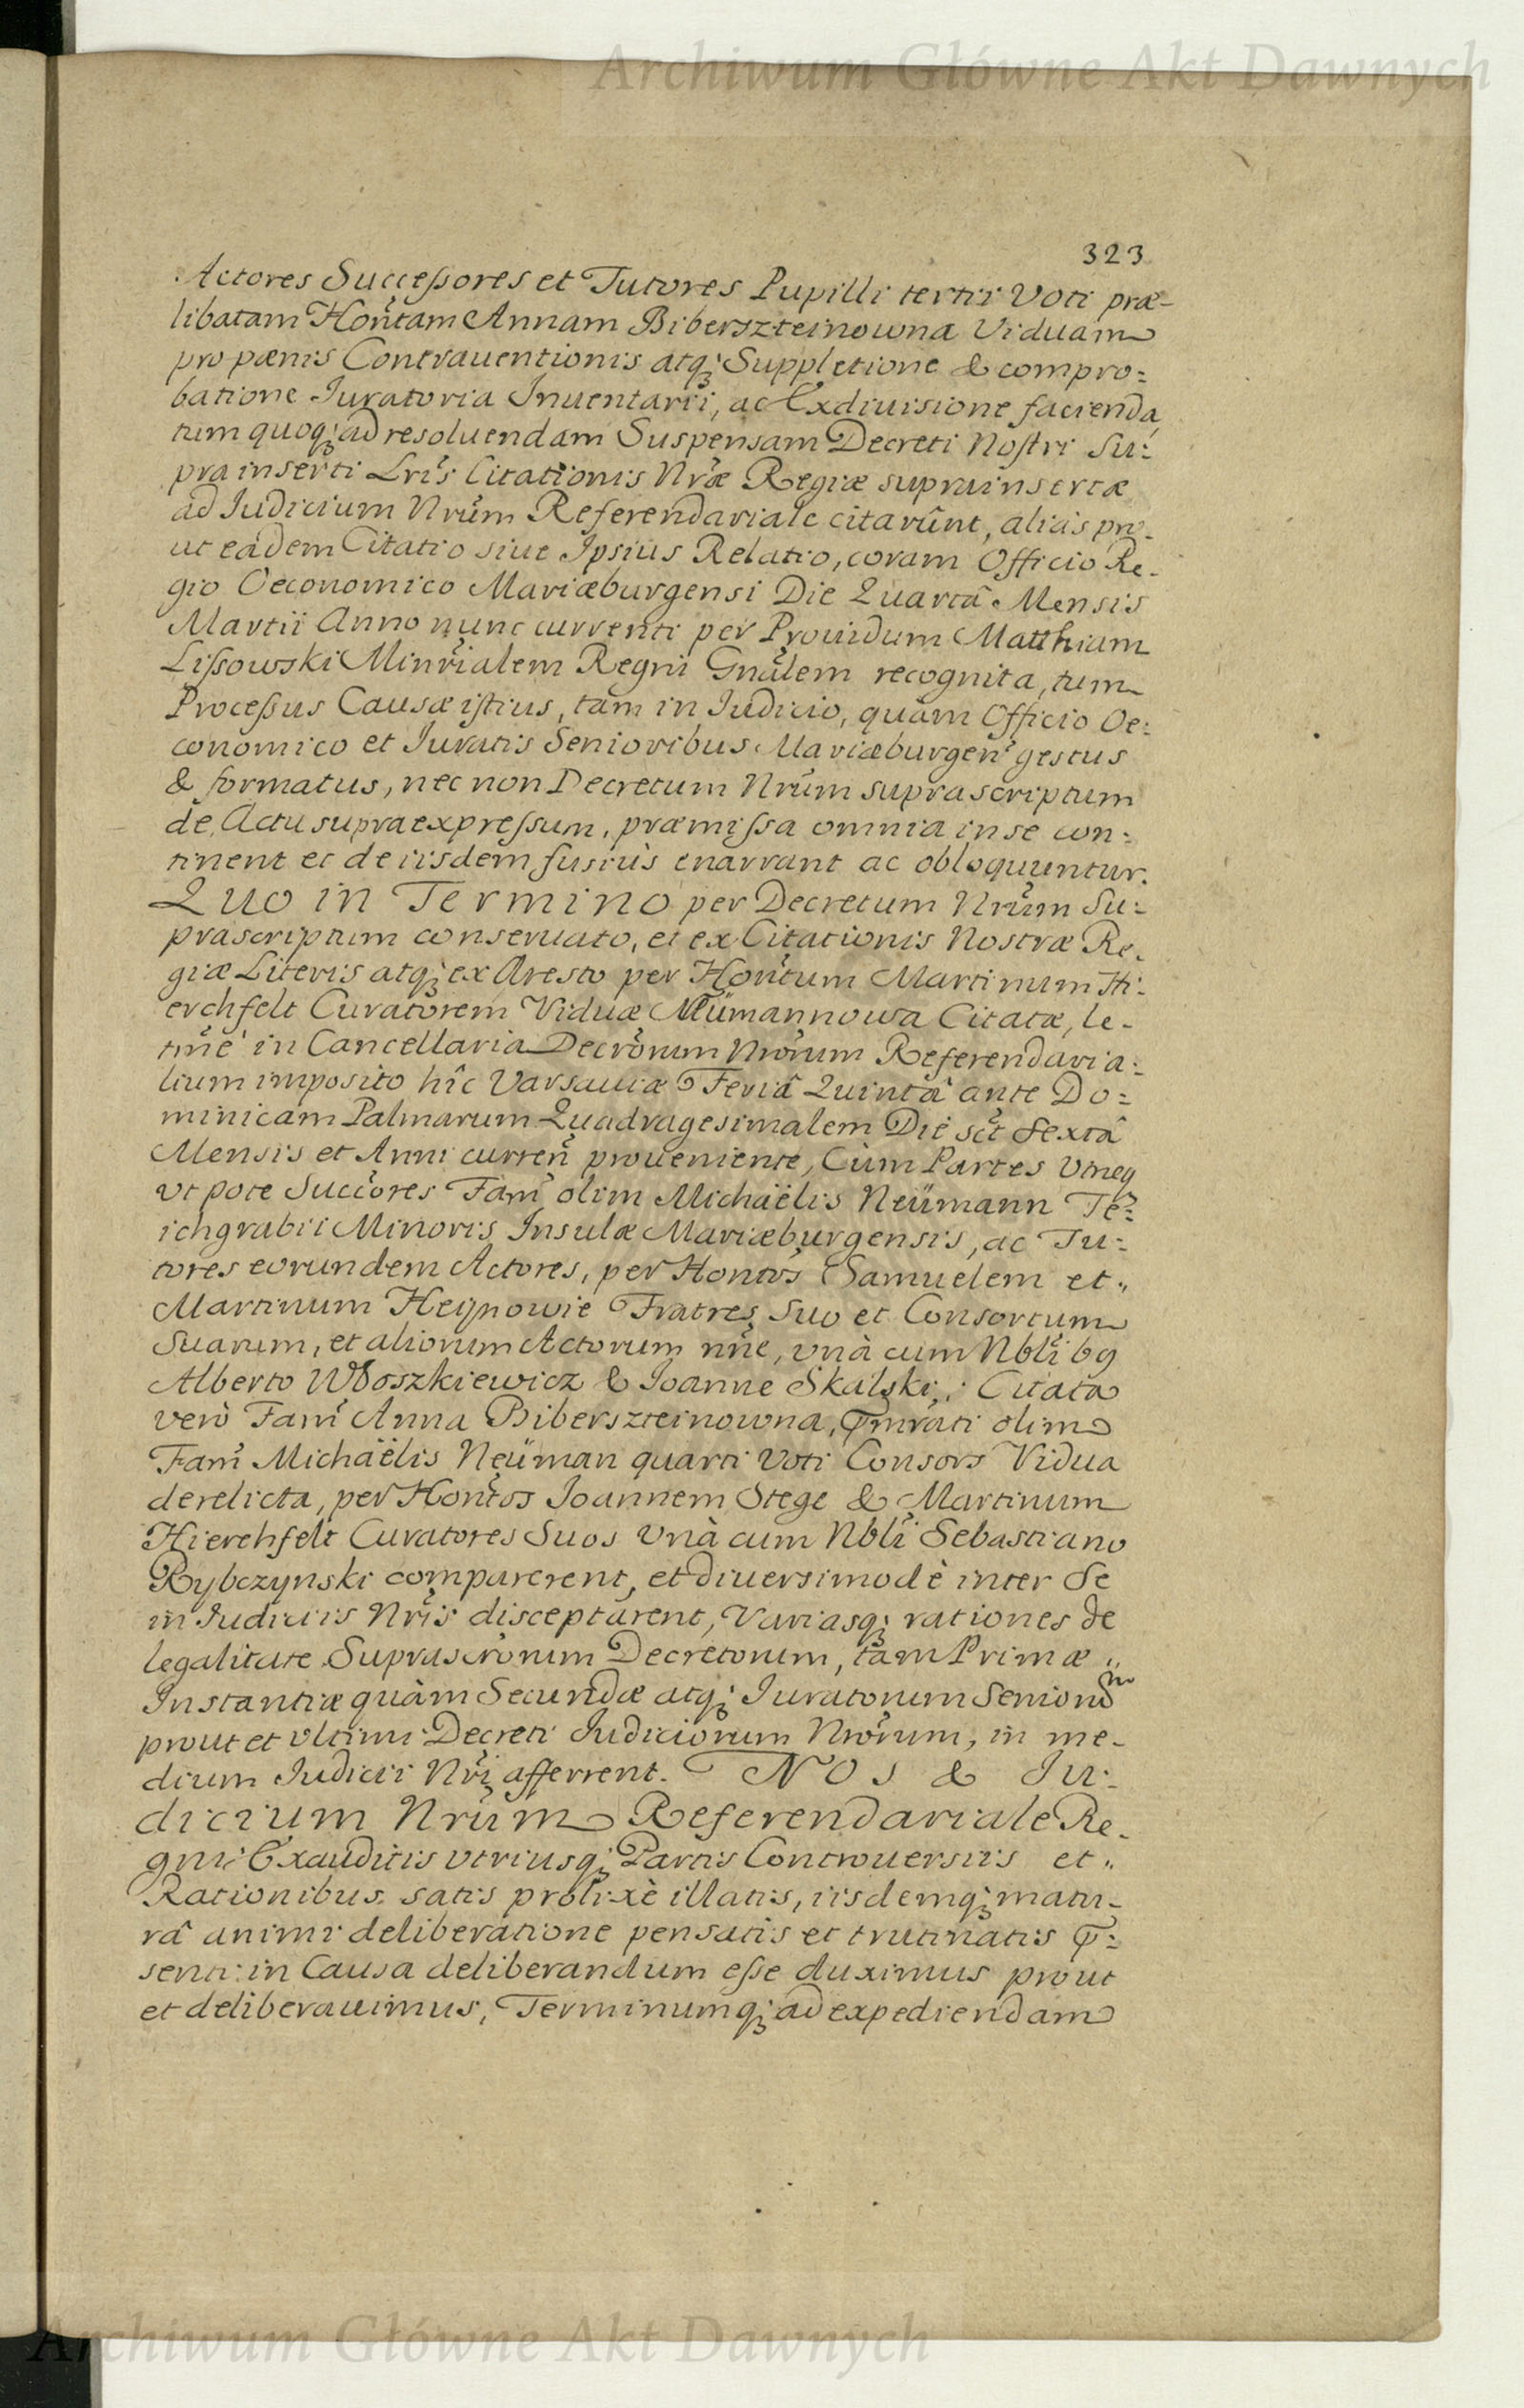 Archiwum Główne Akt Dawnych
323
Actores Succeſsores et Tutores Pupilli tertii Voti præ-
libatam Hontam Annam Biberszteinowna Viduam
pro pænis Contrauentionis atq; Suppletione & compro=
batione Iuratoria Inuentarii, ac Exdiuisione facienda,
tum quoq; ad resoluendam Suspensam Decreti Noſtri Su=
pra inserti Lris Citationis Nræ Regiæ suprainsertæ
ad Iudicium Nrum Referendariale citarûnt, aliàs pro-
ut eâdem Citatio siue Ipsius Relatio, coram Officio Re-
gio Oeconomico Mariæburgensi Die Quartâ Mensis
Martii Anno nunc currenti per Prouidum Matthiam
Liſsowski Minrialem Regni Gnalem recognita, tum
Proceſsus Causæ iſtius, tam in Iudicio, quàm Officio Oe=
conomico et Iuratis Senioribus Mariæburgen gestus
& formatus, nec non Decretum Nrum supra scriptum
de Actu supra expreſsum, præmiſsa omnia in se con=
tinent et de iisdem fusiùs enarrant ac obloquuntur.
Quo in Termino per Decretum Nrum Su=
prascriptum conseruato, et ex Citationis Nostræ Re-
giæ Literis atq; ex Aresto per Hontum Martinum Hi-
erchfelt Curatorem Viduæ Neümannowa Citatæ, le-
tme in Cancellaria Decronum Nrorum Referendaria=
lium imposito hîc Varsauiæ Feriâ Quintâ ante Do=
minicam Palmarum Quadragesimalem Die sct Sextâ
Mensis et Anni curren proueniente, Cùm Partes Vtraeq
vt pote Succores Fam olim Michaëlis Neümann Te=
ichgrabii Minoris Insulæ Mariæburgensis, ac Tu=
tores eorundem Actores, per Hontos Samuelem et
Martinum Heynowie Fratres Suo et Consortum
Suarum, et aliorum Actorum nne, vnà cum Nbli b9
Alberto Wŏoszkiewicz & Ioanne Skalski: Citata
verò Fam Anna Biberszteinowna, Pmrati olim
Fam Michaëlis Neüman quarti Voti Consors Vidua
derelicta, per Hontos Ioannem Stege & Martinum
Hierchfelt Curatores Suos Vnà cum Nbli Sebastiano
Rybczynski comparerent, et diuersimodè inter Se
in Iudiciis Nris disceptarent, Variasq; rationes de
legalitate Suprascronum Decretorum, tam Primæ
Instantiæ quàm Secundæ atq; Iuratorum Senioru
prout et vltimi Decreti Iudiciorum Nrorum, in me-
dium Iudicii Nri afferrent. NOS & Iu=
dicium Nrum Referendariale Re-
gni Exauditis vtriusq; Partis Controuersiis et
Rationibus satis prolixè illatis, iisdemq; matu-
râ animi deliberatione pensatis et trutinatis P=
senti in Causa deliberandum eſse duximus prout
et deliberauimus, Terminumq; ad expediendam
Archiwum Główne Akt Dawnych